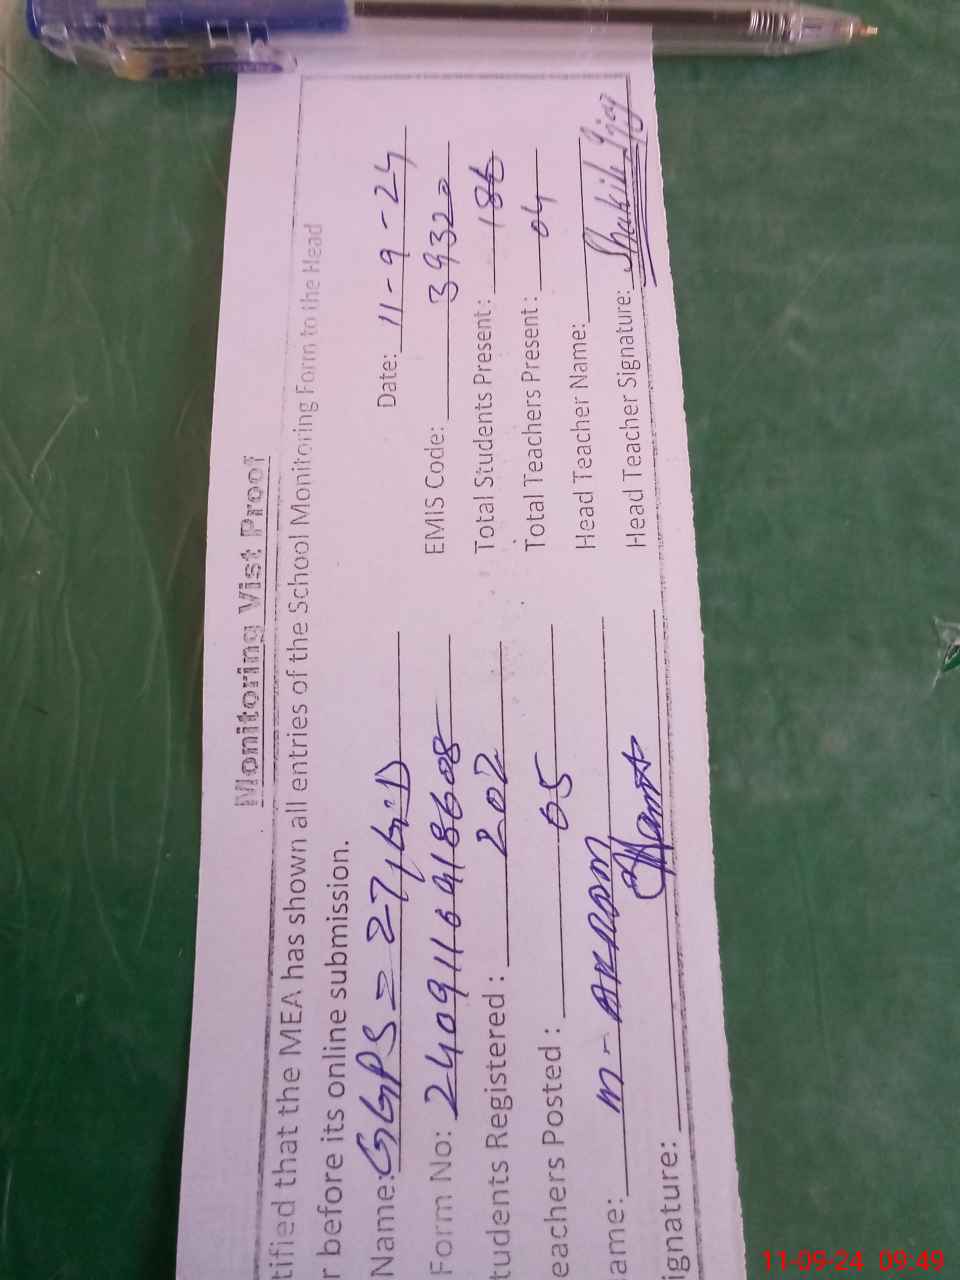 Monitoring Vist Proof
tified that the MEA has shown all entries of the School Monitoring Form to the Head
r before its online submission.
Name: GGPS = 27/G.D Date: 11-9-24
Form No: 2409116918608 EMIS Code: 39320
tudents Registered : 202 Total Students Present : 186
eachers Posted : 05 Total Teachers Present : 04
ame: M- AKRAM Head Teacher Name:
ignature: Head Teacher Signature: Shakila
11-09-24 09:49